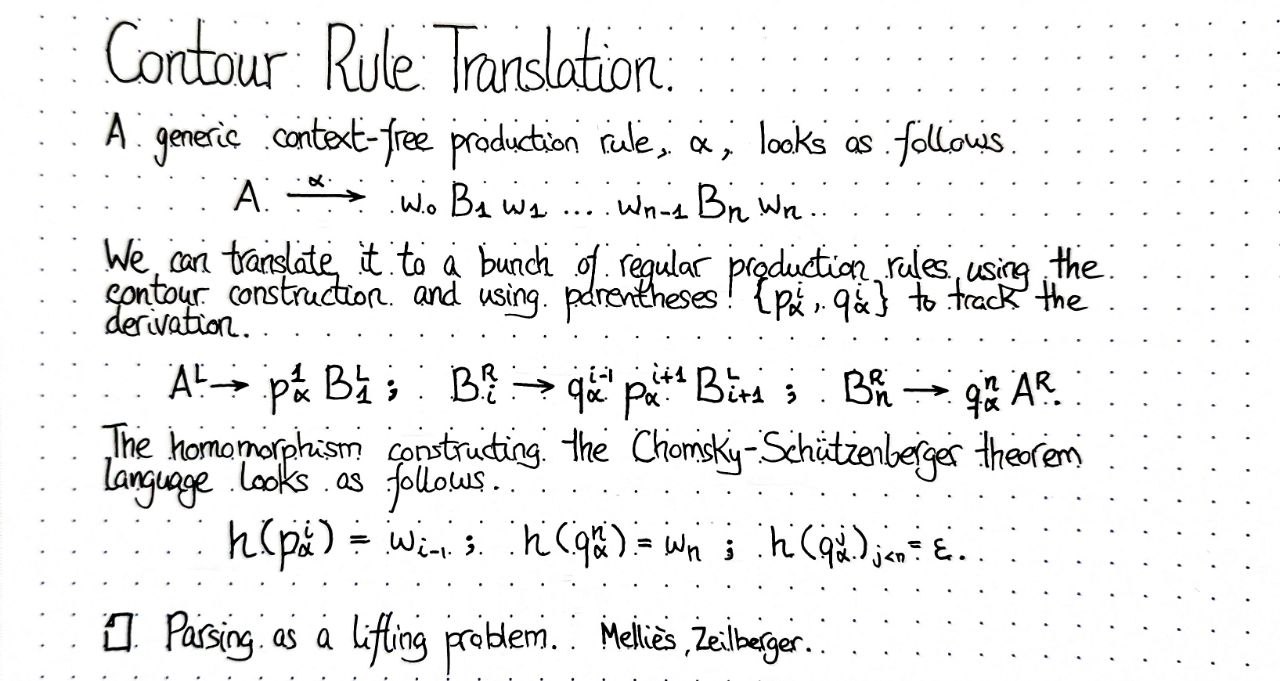 Contour Rule Translation.
A generic context-free production rule, α, looks as follows.
A —α→ w₀ B₁ w₁ .... wₙ₋₁ Bₙ wₙ.
We can translate it to a bunch of regular production rules using the
contour construction and using parentheses! {p_α^i, q_α^i} to track the
derivation.
A^L → p_α^1 B_1^L ; B_i^R → q_α^{i-1} p_α^{i+1} B_{i+1}^L ; B_n^R → q_α^n A^R.
The homomorphism constructing the Chomsky-Schützenberger theorem
language looks as follows.
h(p_α^i) = w_{i-1} ; h(q_α^n) = w_n ; h(q_α^j)_{j<n} = ε.
Parsing as a lifting problem. Melliès, Zeilberger.